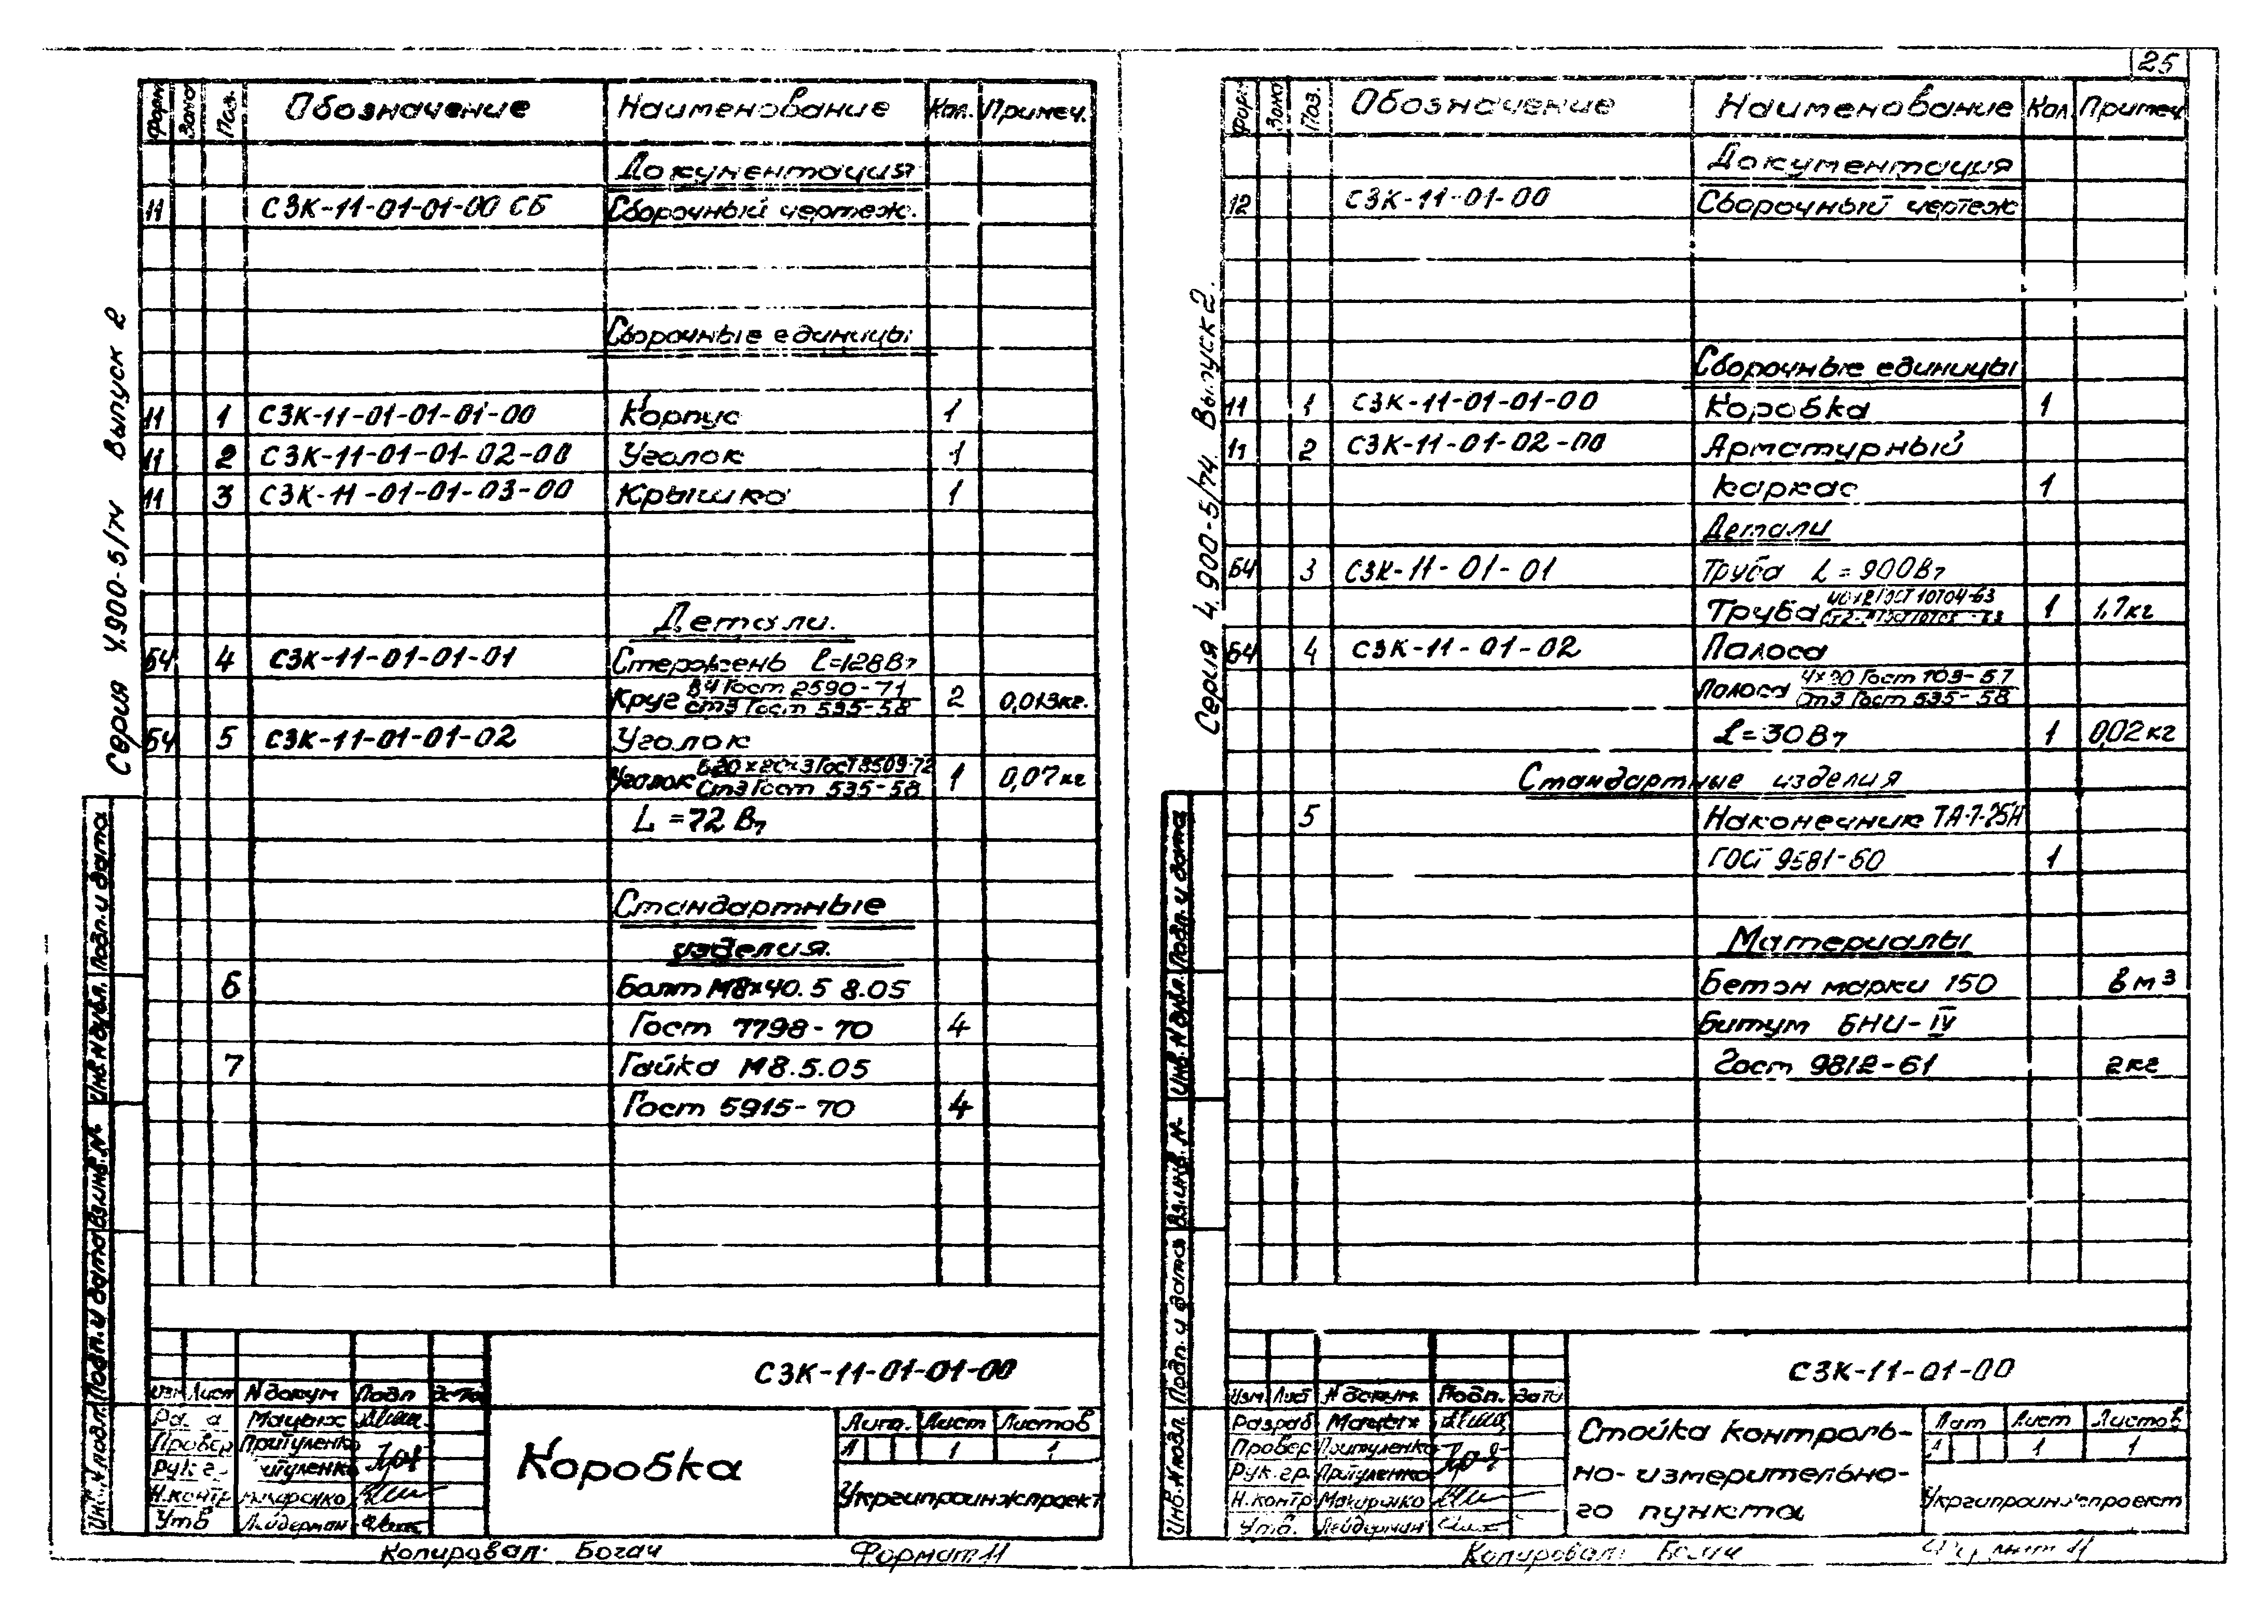 25
Серия 4.900-5/74 Выпуск 2
Форм Зона Поз. Обозначение Наименование Кол. Примеч.
Документация
11 СЗК-11-01-01-00 СБ Сборочный чертеж.
Сборочные единицы
11 1 СЗК-11-01-01-01-00 Корпус 1
11 2 СЗК-11-01-01-02-00 Уголок 1
11 3 СЗК-11-01-01-03-00 Крышка 1
Детали.
БЧ 4 СЗК-11-01-01-01 Стержень ℓ=128В7
Круг В4 Гост 2590-71 2 0,013кг.
ст3 Гост 535-58
БЧ 5 СЗК-11-01-01-02 Уголок
Уголок Б20×20×3 Гост 8509-72 1 0,07кг
Ст3 Гост 535-58
L=72 В7
Стандартные
изделия.
6 Болт М8×40.5 8.05
Гост 7798-70 4
7 Гайка М8.5.05
Гост 5915-70 4
Инв.N подл. Подп. и дата Вз.инв.N Инв.N дубл. Подп. и дата
СЗК-11-01-01-00
Изм Лист N докум Подп Дата
Мацых
Провер Притуленко
Рук.г.
Н.контр
Утв Лейдерман
Коробка
Лит. Лист Листов
А 1 1
Укргипроинжпроект
Копировал: Богач Формат 11
Серия 4.900-5/74. Выпуск 2.
Форм Зона Поз. Обозначение Наименование Кол. Примеч.
Документация
12 СЗК-11-01-00 Сборочный чертеж
Сборочные единицы
11 1 СЗК-11-01-01-00 Коробка 1
11 2 СЗК-11-01-02-00 Арматурный
каркас 1
Детали
БЧ 3 СЗК-11-01-01 Труба L=900В7
Труба 40×2 ГОСТ 10704-63 1 1,7кг
БЧ 4 СЗК-11-01-02 Полоса
Полоса 4×20 Гост 103-57
Ст3 Гост 535-58
L=30В7 1 0,02кг
Стандартные изделия
5 Наконечник ТА-7-25Н
ГОСТ 9581-60 1
Материалы
Бетон марки 150 в м³
Битум БНИ-IV
Гост 9812-61 2кг
Инв.N подл. Подп. и дата Вз.инв.N Инв.N дубл. Подп. и дата
СЗК-11-01-00
Изм Лист N докум. Подп. Дата
Разраб Мацых
Провер Притуленко
Рук.гр. Притуленко
Н.контр Макаренко
Утв. Лейдерман
Стойка контроль-
но-измерительно-
го пункта
Лит Лист Листов
А 1 1
Укргипроинжпроект
Копировал: Богач Формат 11